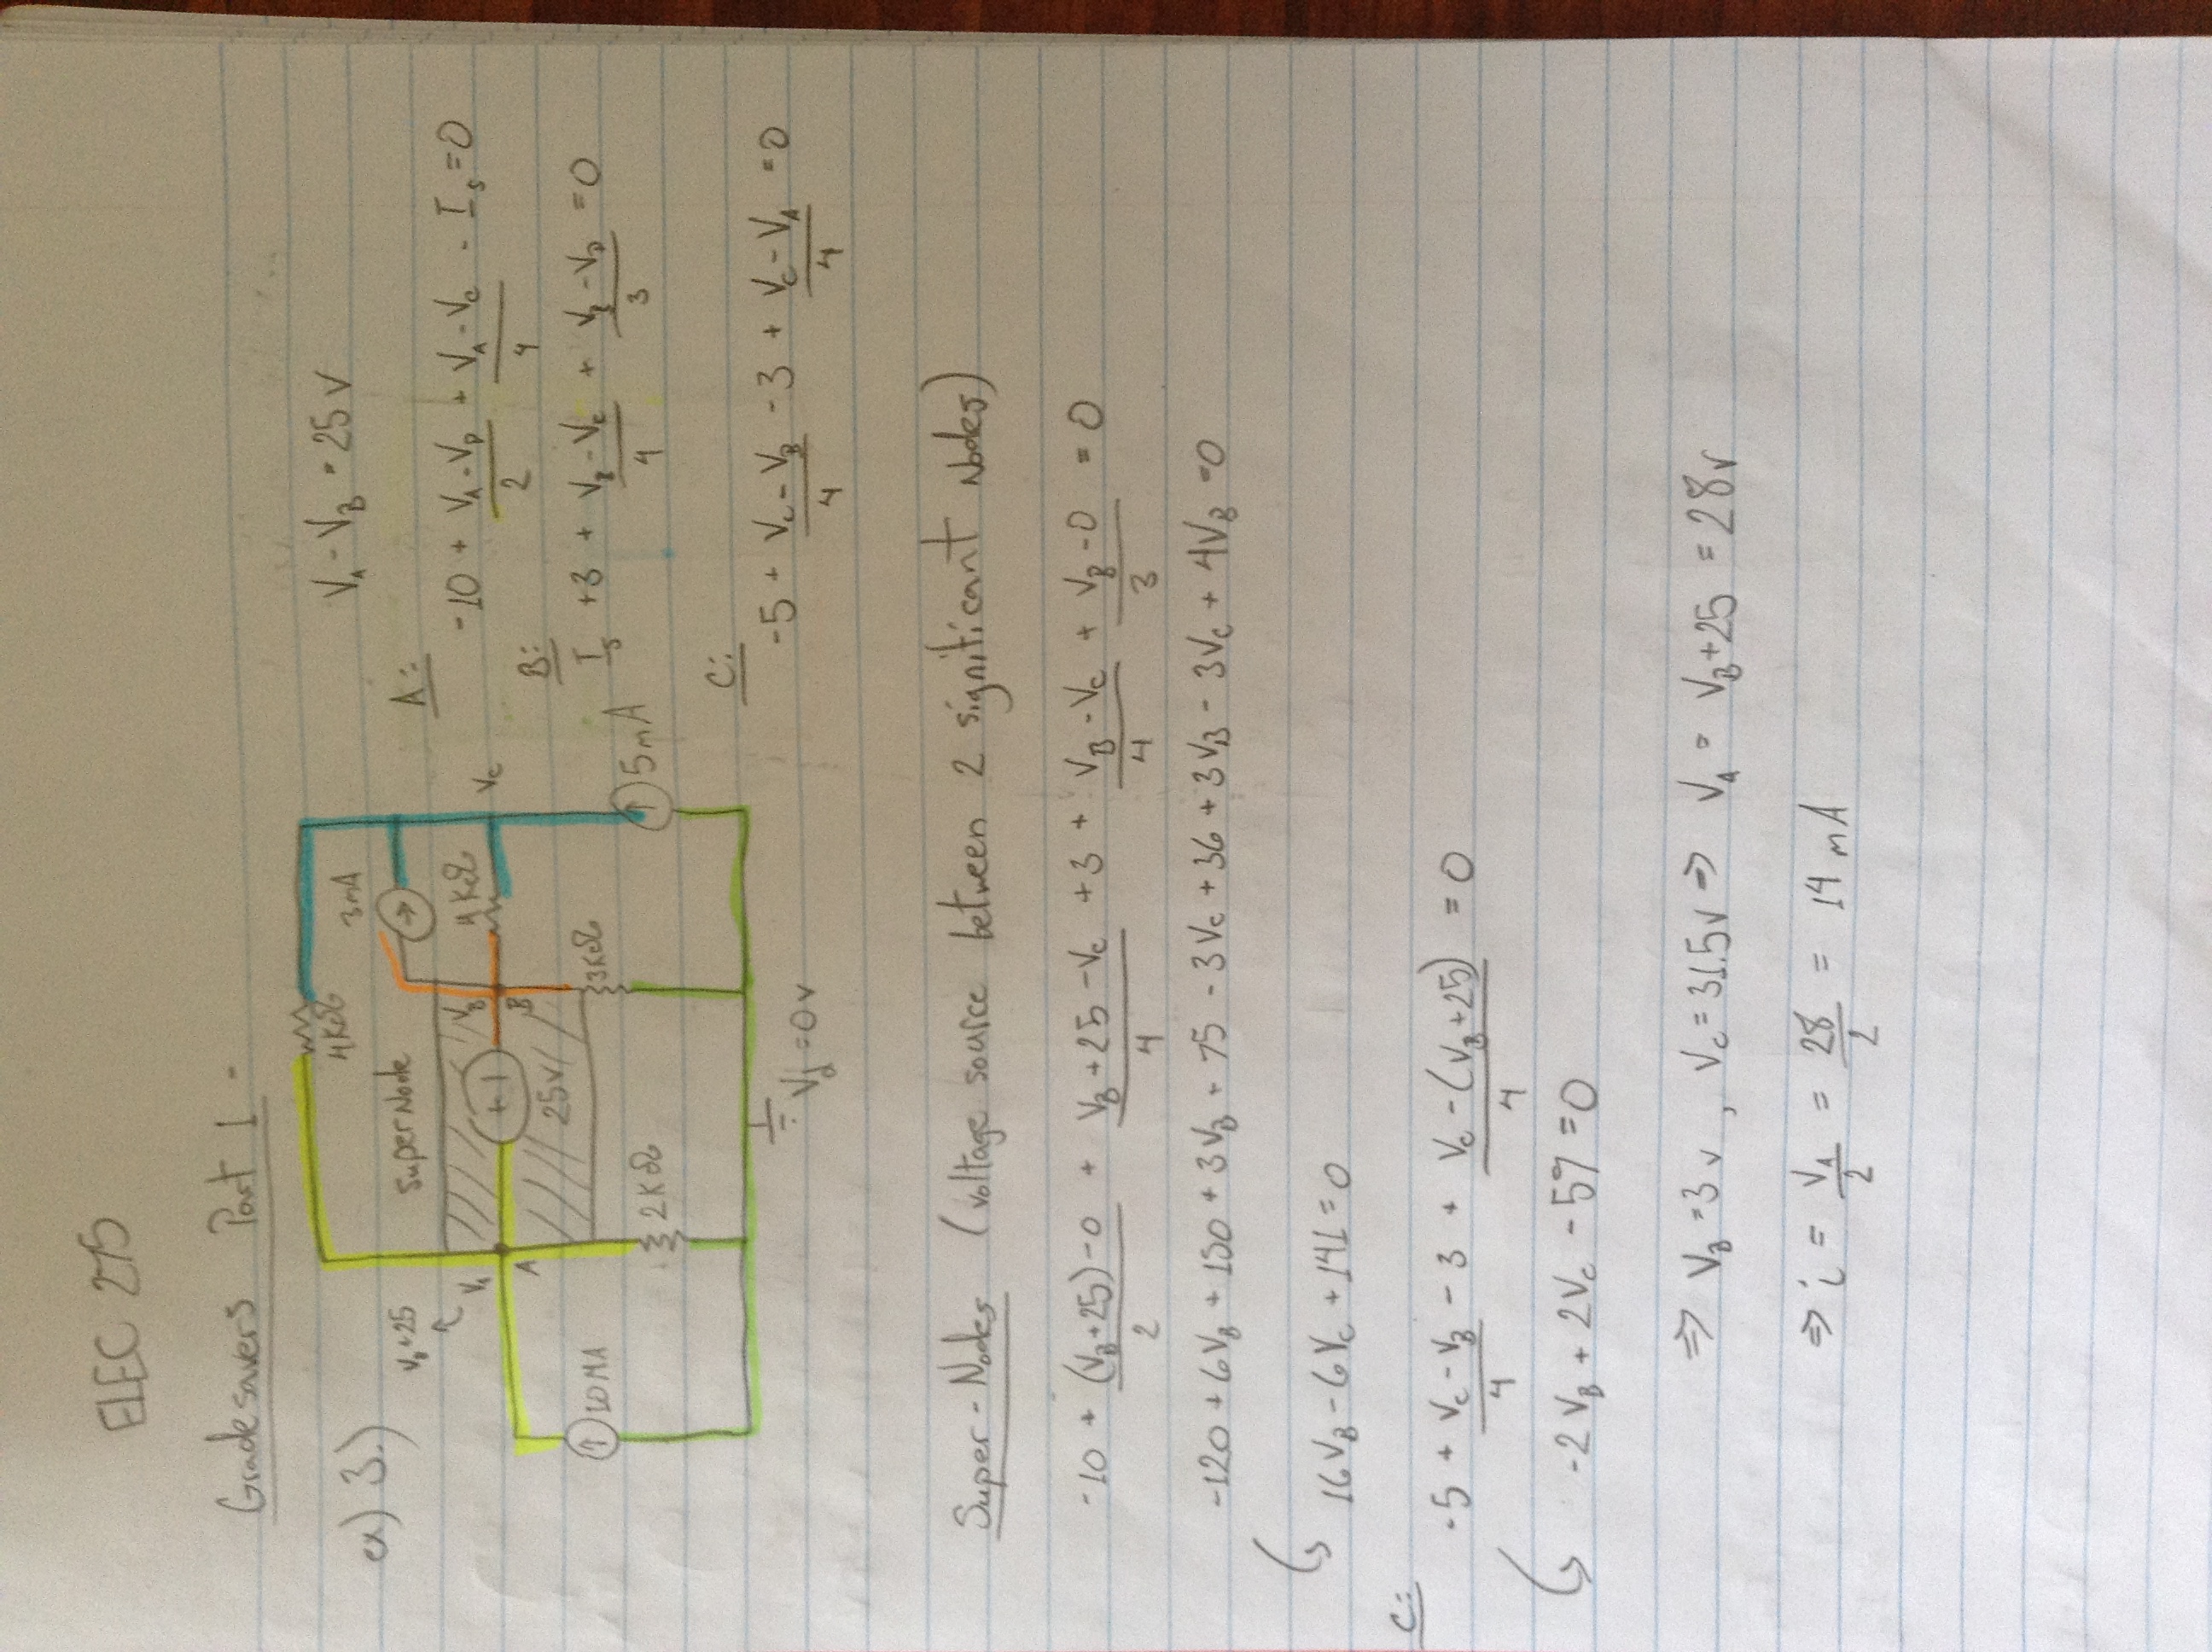 ELEC 275
Gradesavers Part 1 -
ex) 3.)
4KΩ
3mA
VB+25
SuperNode
VA
VB
4KΩ
VC
A
+ -
B
25V
10MA
3KΩ
2KΩ
5mA
Vd = 0v
VA - VB = 25 V
A:
-10 + (VA - VD)/2 + (VA - VC)/4 - Is = 0
B:
Is + 3 + (VB - VC)/4 + (VB - VD)/3 = 0
C:
-5 + (VC - VB)/4 - 3 + (VC - VA)/4 = 0
Super-Nodes (voltage source between 2 significant Nodes)
-10 + ((VB+25)-0)/2 + (VB+25-VC)/4 + 3 + (VB - VC)/4 + (VB - 0)/3 = 0
-120 + 6VB + 150 + 3VB + 75 - 3VC + 36 + 3VB - 3VC + 4VB = 0
16VB - 6VC + 141 = 0
C:
-5 + (VC - VB)/4 - 3 + (VC - (VB+25))/4 = 0
-2VB + 2VC - 57 = 0
⇒ VB = 3v, VC = 31.5v ⇒ VA = VB+25 = 28v
⇒ i = VA/2 = 28/2 = 14 mA